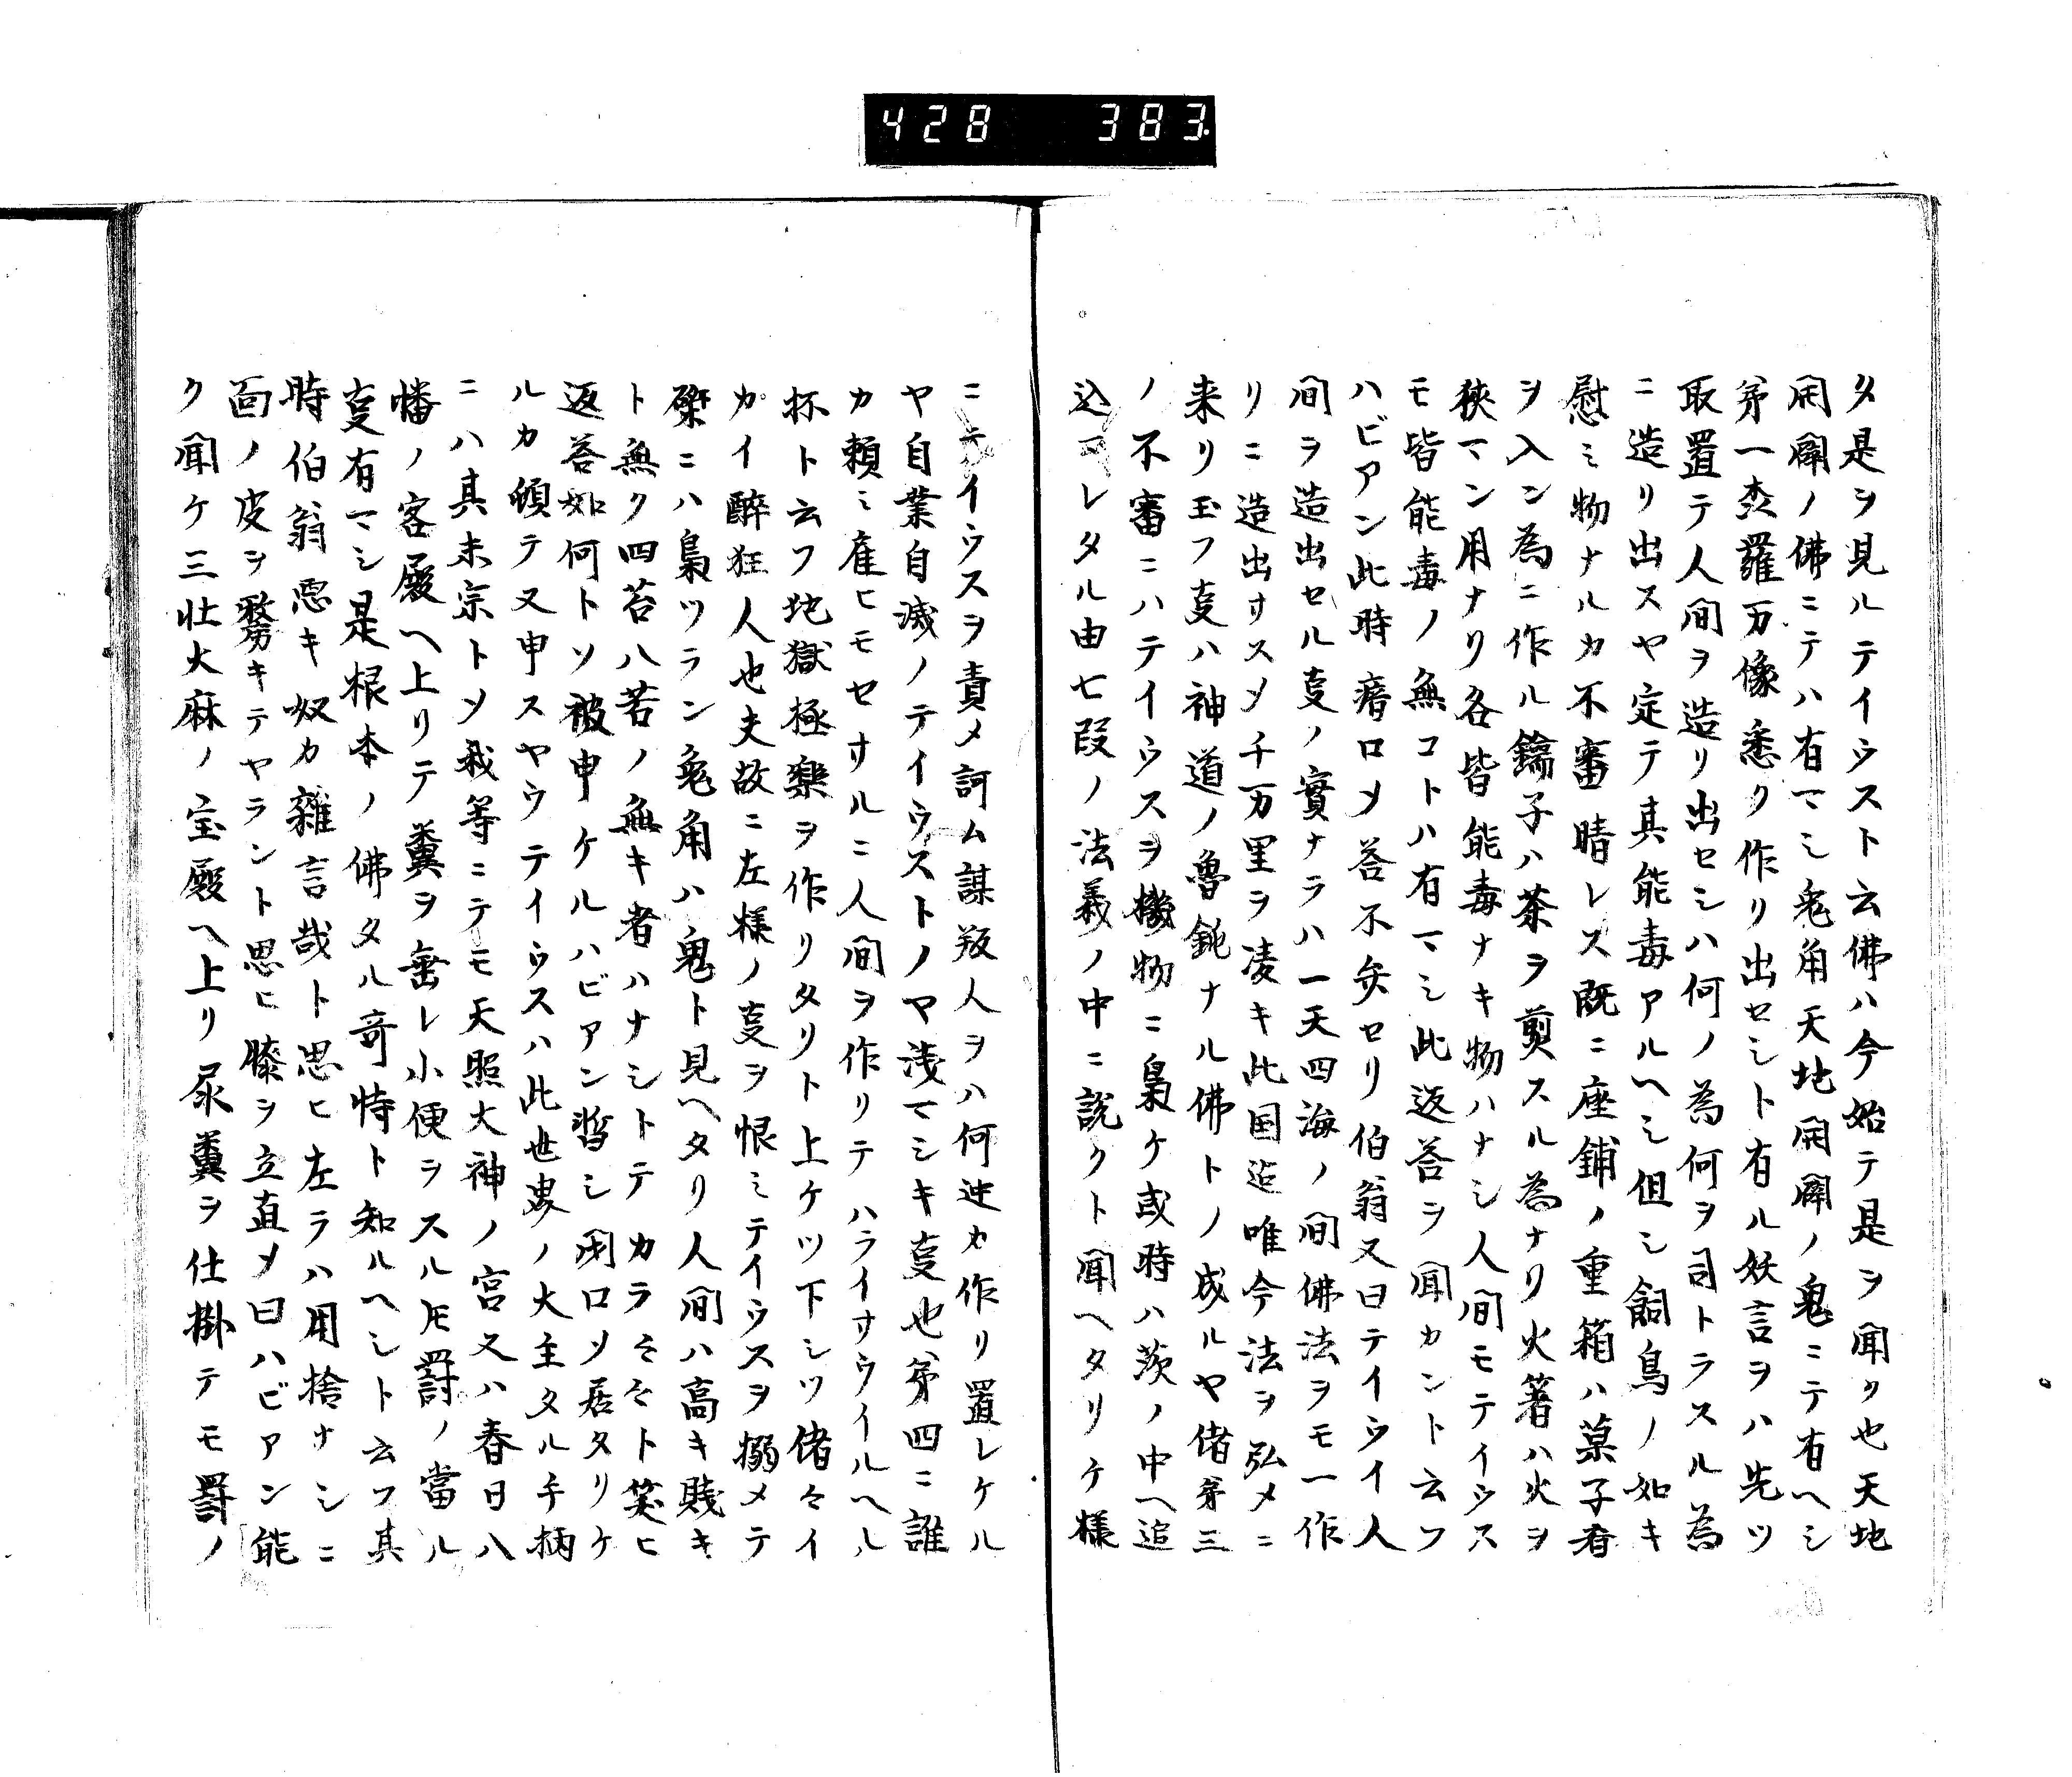 428 383.
タ是ヲ見ルテイウスト云佛ハ今始テ是ヲ聞ク也天地
開闢ノ佛ニテハ有マシ兎角天地開闢ノ鬼ニテ有ヘシ
第一森羅万像悉ク作リ出セシト有ル妖言ヲハ先ツ
取置テ人間ヲ造リ出セシハ何ノ為何ヲ司トラスル為
ニ造リ出スヤ定テ其能毒アルヘシ但シ飼鳥ノ如キ
慰ミ物ナルカ不審晴レス既ニ座鋪ノ重箱ハ菓子肴
ヲ入ン為ニ作ル鑵子ハ茶ヲ煎スル為ナリ火箸ハ火ヲ
狹マン用ナリ各皆能毒ナキ物ハナシ人間モテイウス
モ皆能毒ノ無コトハ有マシ此返答ヲ聞カント云フ
ハビアン此時瘖口メ答不矣セリ伯翁又曰テイウイ人
間ヲ造出セル叓ノ實ナラハ一天四海ノ間佛法ヲモ一作
リニ造出サスメ千万里ヲ凌キ此国迄唯今法ヲ弘メニ
来リ玉フ叓ハ神道ノ魯鈍ナル佛トノ成ルヤ偖第三
ノ不審ニハテイウスヲ機物ニ梟ケ或時ハ茨ノ中ヘ追
込マレタル由七段ノ法義ノ中ニ説クト聞ヘタリケ様
ニテイウスヲ責メ訶ム謀叛人ヲハ何迚カ作リ置レケル
ヤ自業自滅ノテイウストノヤ浅マシキ叓也第四ニ誰
カ頼ミ雇ヒモセサルニ人間ヲ作リテハライサウイルヘル
抔ト云フ地獄極樂ヲ作リタリト上ケツ下シツ偖々イ
カイ醉狂人也夫故ニ左様ノ叓ヲ恨ミテイウスヲ搦メテ
磔ニハ梟ツラン兎角ハ鬼ト見ヘタリ人間ハ高キ賤キ
ト無ク四苔八苦ノ無キ者ハナシトテカラ々々ト笑ヒ
返答如何トソ被申ケルハビアン暫シ閉口ソ居タリケ
ルカ傾テ又申スヤウテイウスハ此世界ノ大主タル手柄
ニハ其末宗トソ我等ニテモ天照大神ノ宮又ハ春日八
幡ノ客殿ヘ上リテ糞ヲ垂レ小便ヲスル𪜈罸ノ當ル
叓有マシ是根本ノ佛タル奇特ト知ルヘシト云フ其
時伯翁悪キ奴カ雜言哉ト思ヒ左ラハ用捨ナシニ
面ノ皮ヲ剺キテヤラント思ヒ膝ヲ立直メ曰ハビアン能
ク聞ケ三壮大麻ノ宝殿ヘ上リ尿糞ヲ仕掛テモ罸ノ